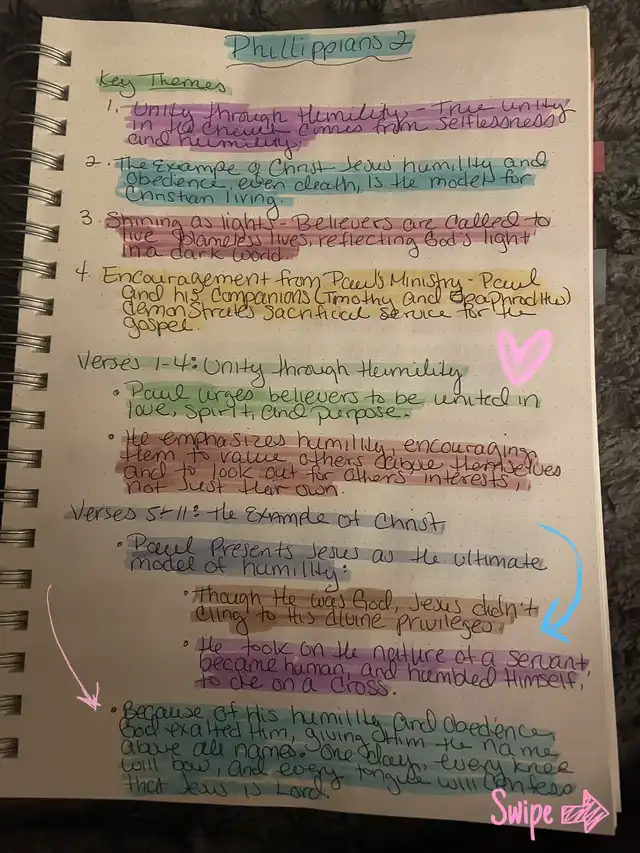 Phillippians 2
Key Themes
1. Unity through Humility - True unity
in the church comes from selflessness
and humility.
2. The Example of Christ Jesus humility and
obedience, even death, is the model for
Christian living.
3. Shining as lights - Believers are called to
live blameless lives, reflecting God's light
in a dark world
4. Encouragement from Paul's Ministry - Paul
and his companions (Timothy and Epaphroditus)
demonstrates sacrificial service for the
gospel.
Verses 1-4: Unity through Humility
• Paul urges believers to be united in
love, spirit, and purpose.
• He emphasizes humility, encouraging
them to value others above themselves
and to look out for others interests,
not just their own.
Verses 5-11: the Example of Christ
• Paul Presents Jesus as the ultimate
model of humility:
• though He was God, Jesus didn't
cling to His divine privileges,
• He took on the neiture of a servant,
became human, and humbled Himself,
to die on a cross.
• Because of His humility and obedience,
God exalted Him, giving Him the name
above all names. One day, every knee
will bow, and every tongue will confess
that Jesus is Lord.
Swipe